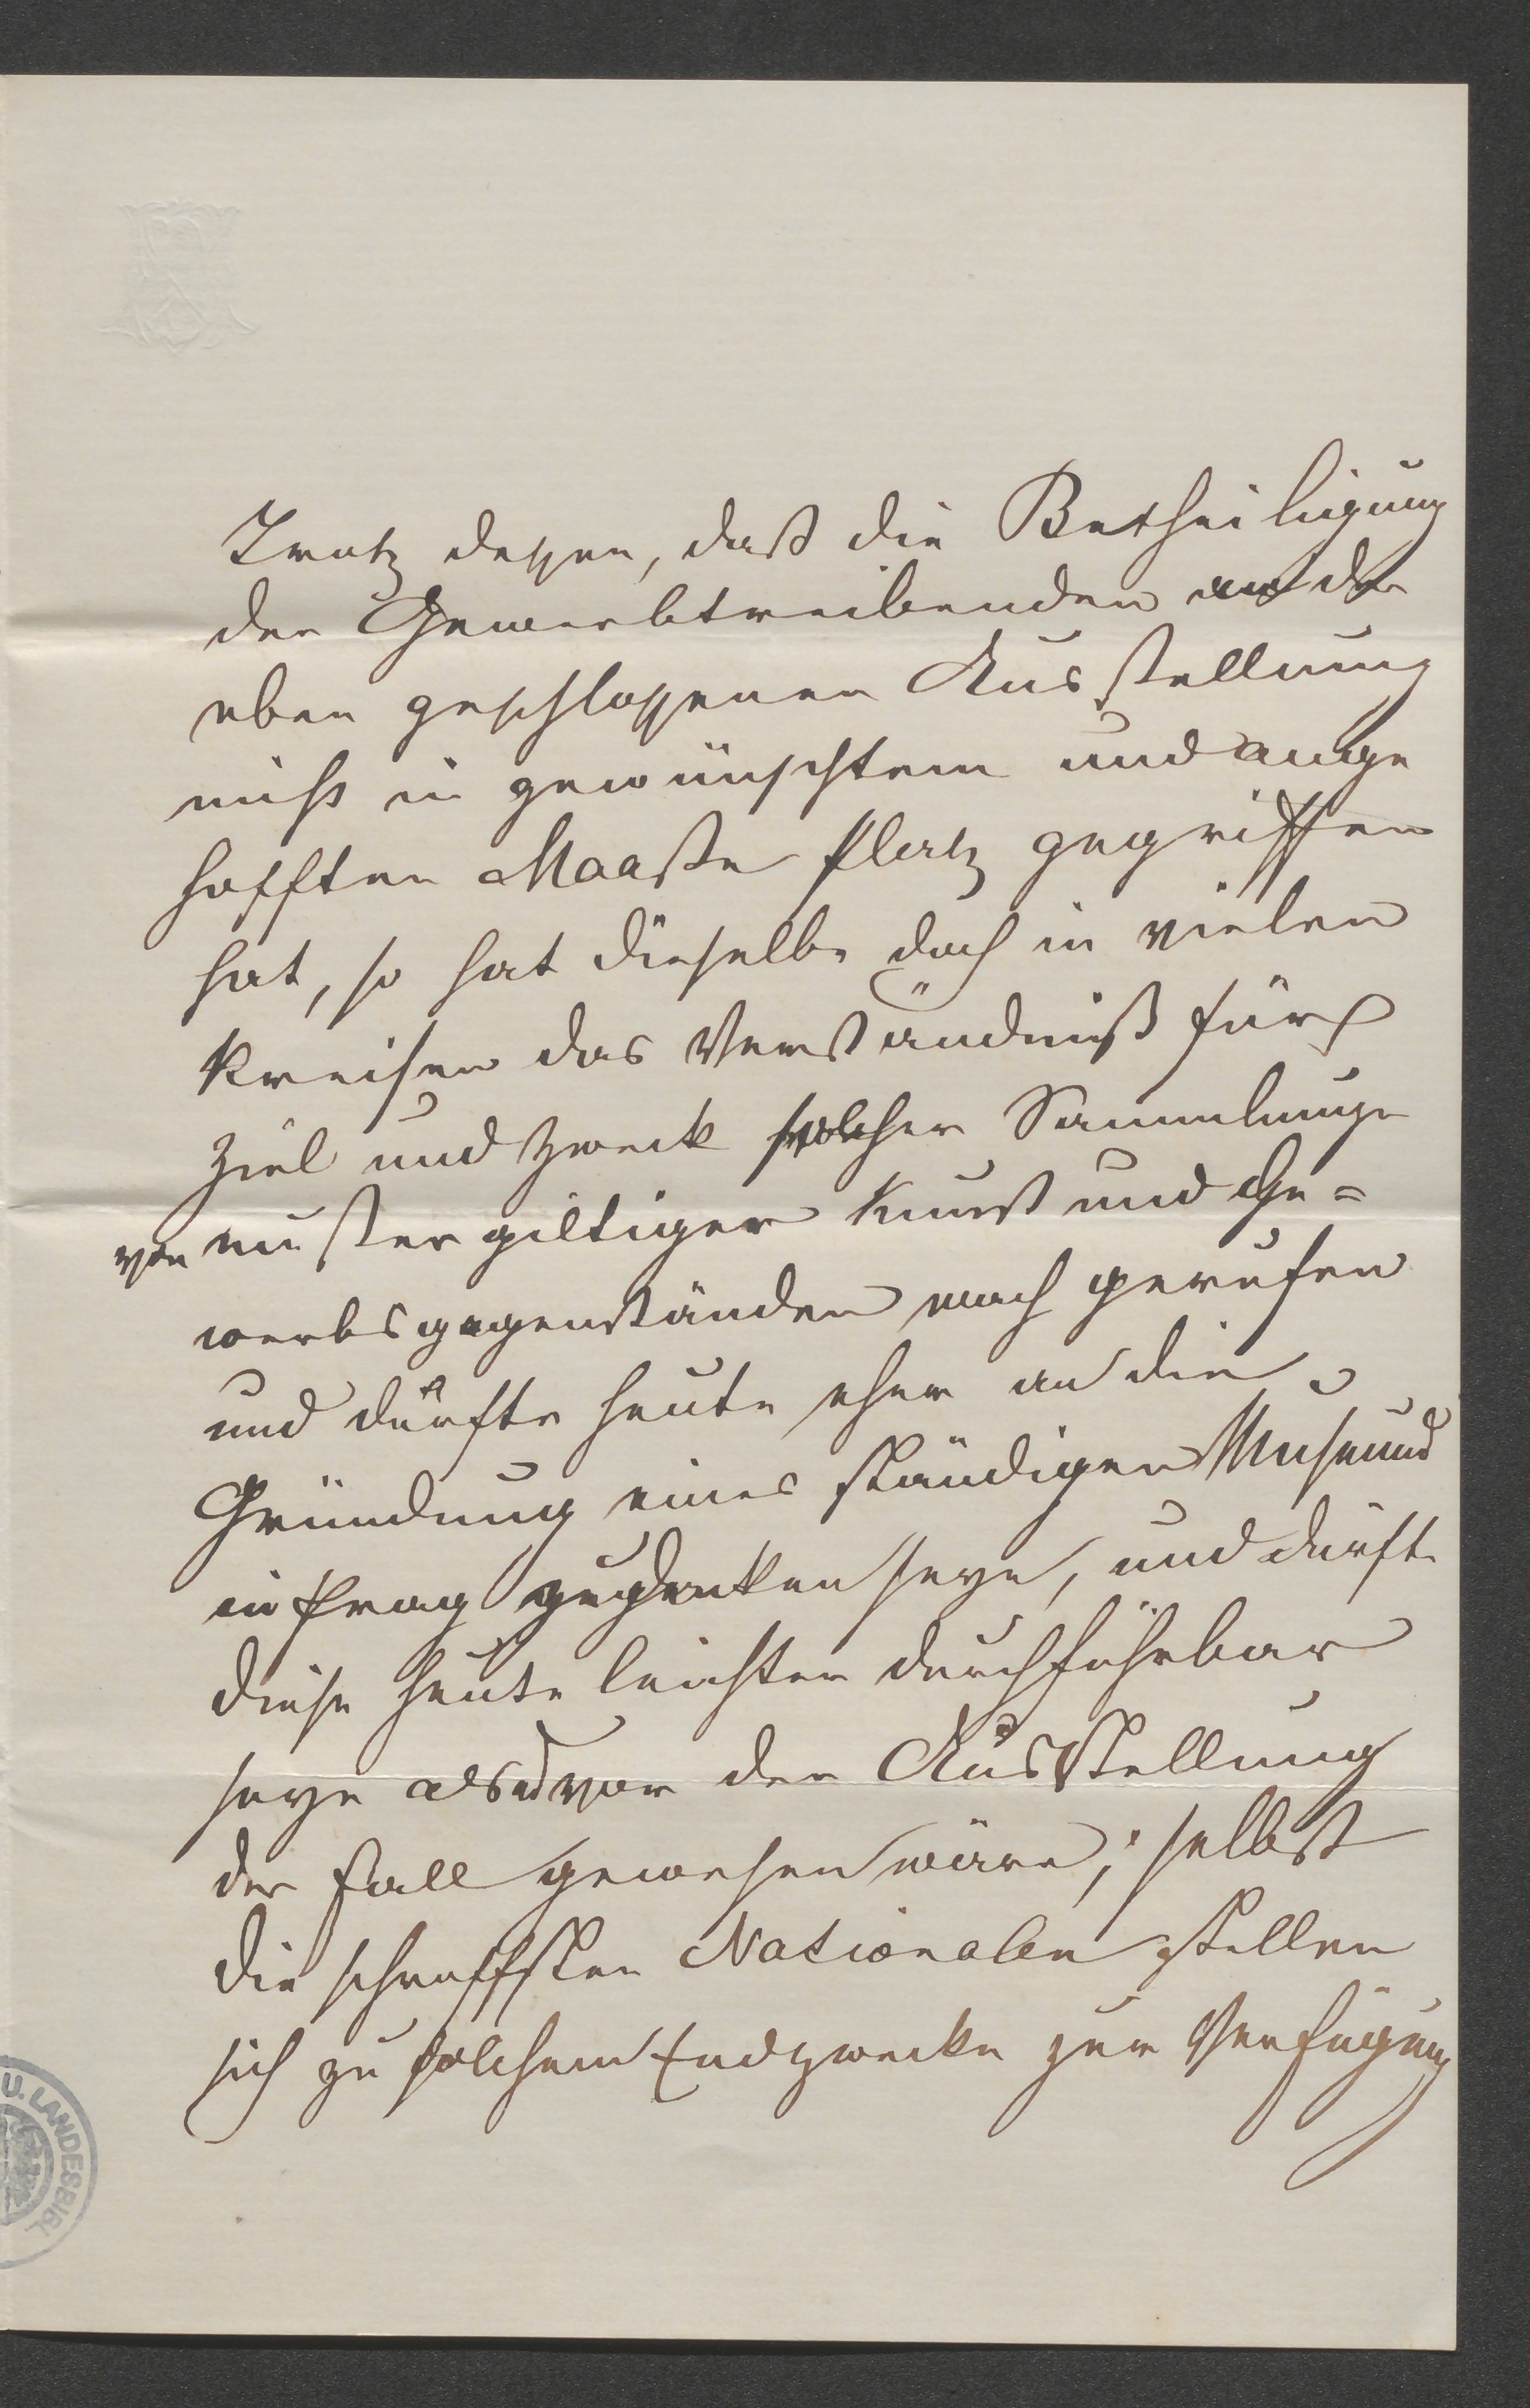 Trotz dessen, daß die Betheiligung
der Gewerbtreibenden an der
eben geschlossenen Ausstellung
nicht in gewünschtem und ange
hofften Maaße Platz gegriffen
hat, so hat dieselbe doch in vielen
Kreisen das Verständniß für
Ziel und Zweck solcher Sammlunge
von mustergiltiger Kunst und Ge=
werbsgegenständen wach gerufen
und dürfte heute eher an die
Gründung eines ständigen Museums
in Prag zu denken seye, und dürfte
diese heute leichter durchführbar
seye als es vor der Ausstellung
der Fall gewesen wäre; selbst
die schroffsten Nationalen stellen
sich zu solchem Endzwecke zur Verfügung
U. LANDESBIBL